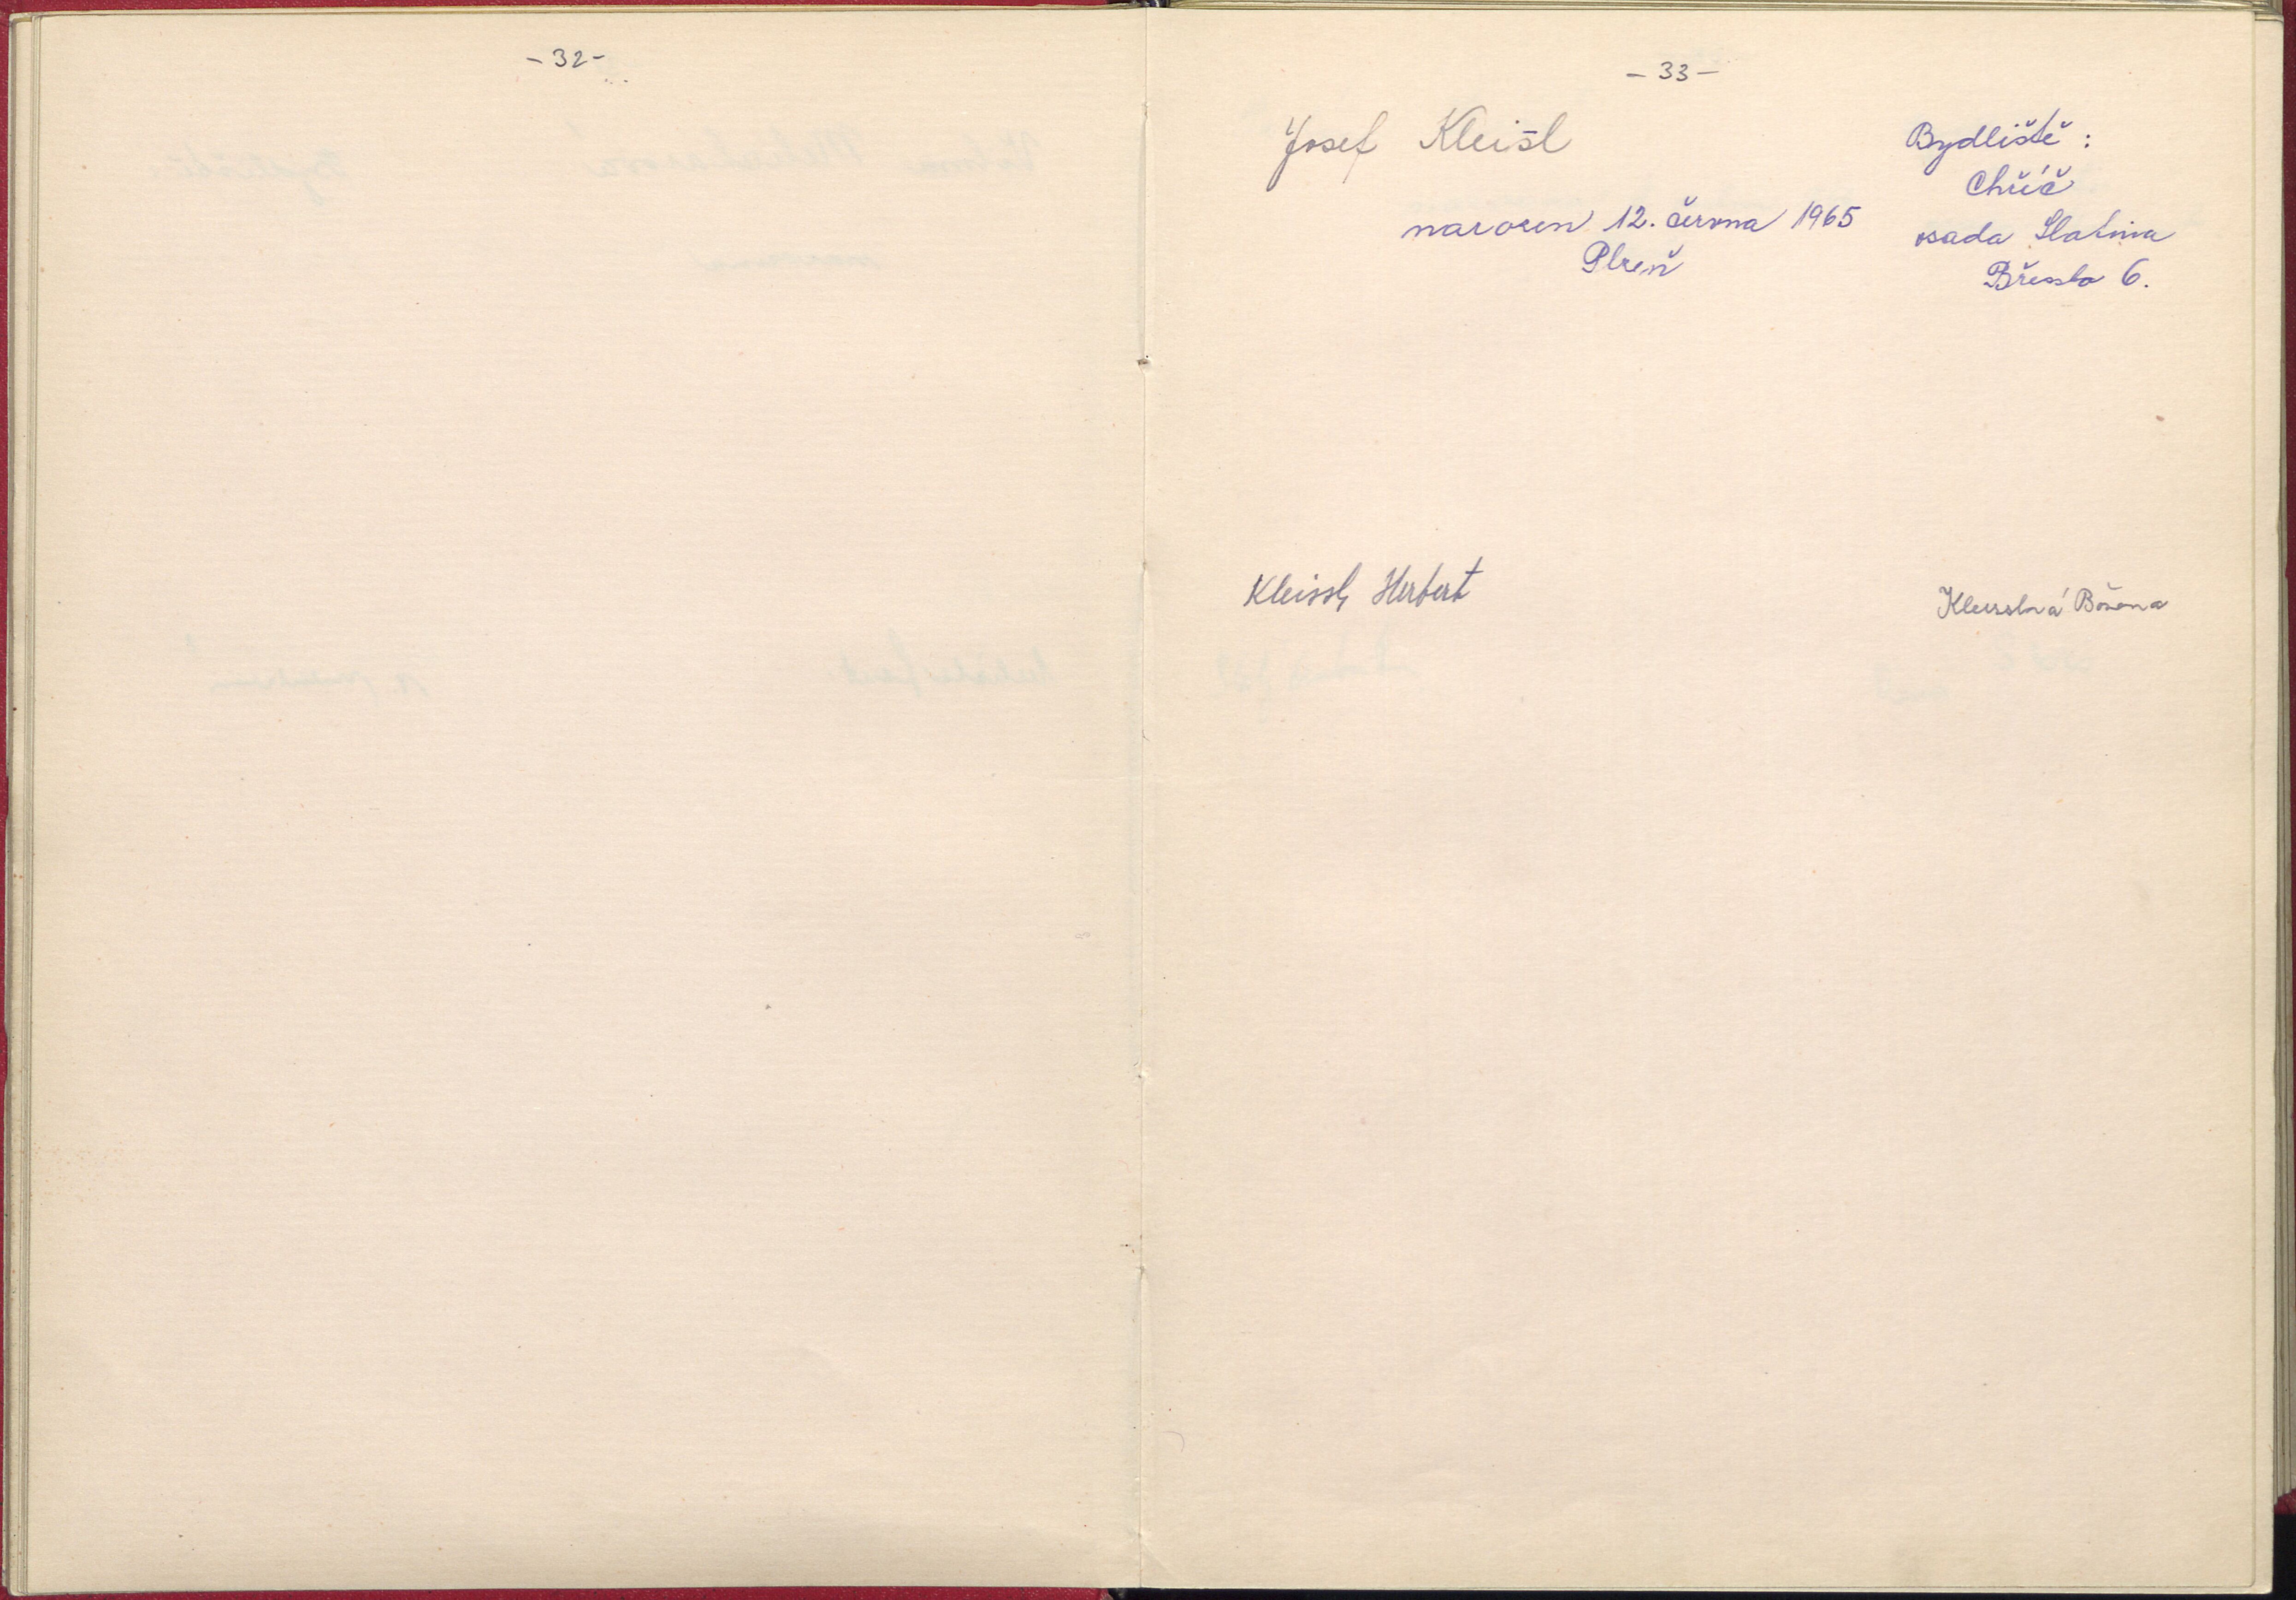 - 32 -
- 33 -
Josef Kleisl
narozen 12. června 1965
Plzeň
Bydliště :
Chříč
osada Slatina
Břessko 6.
Kleissl Herbert
Kleisslová Božena